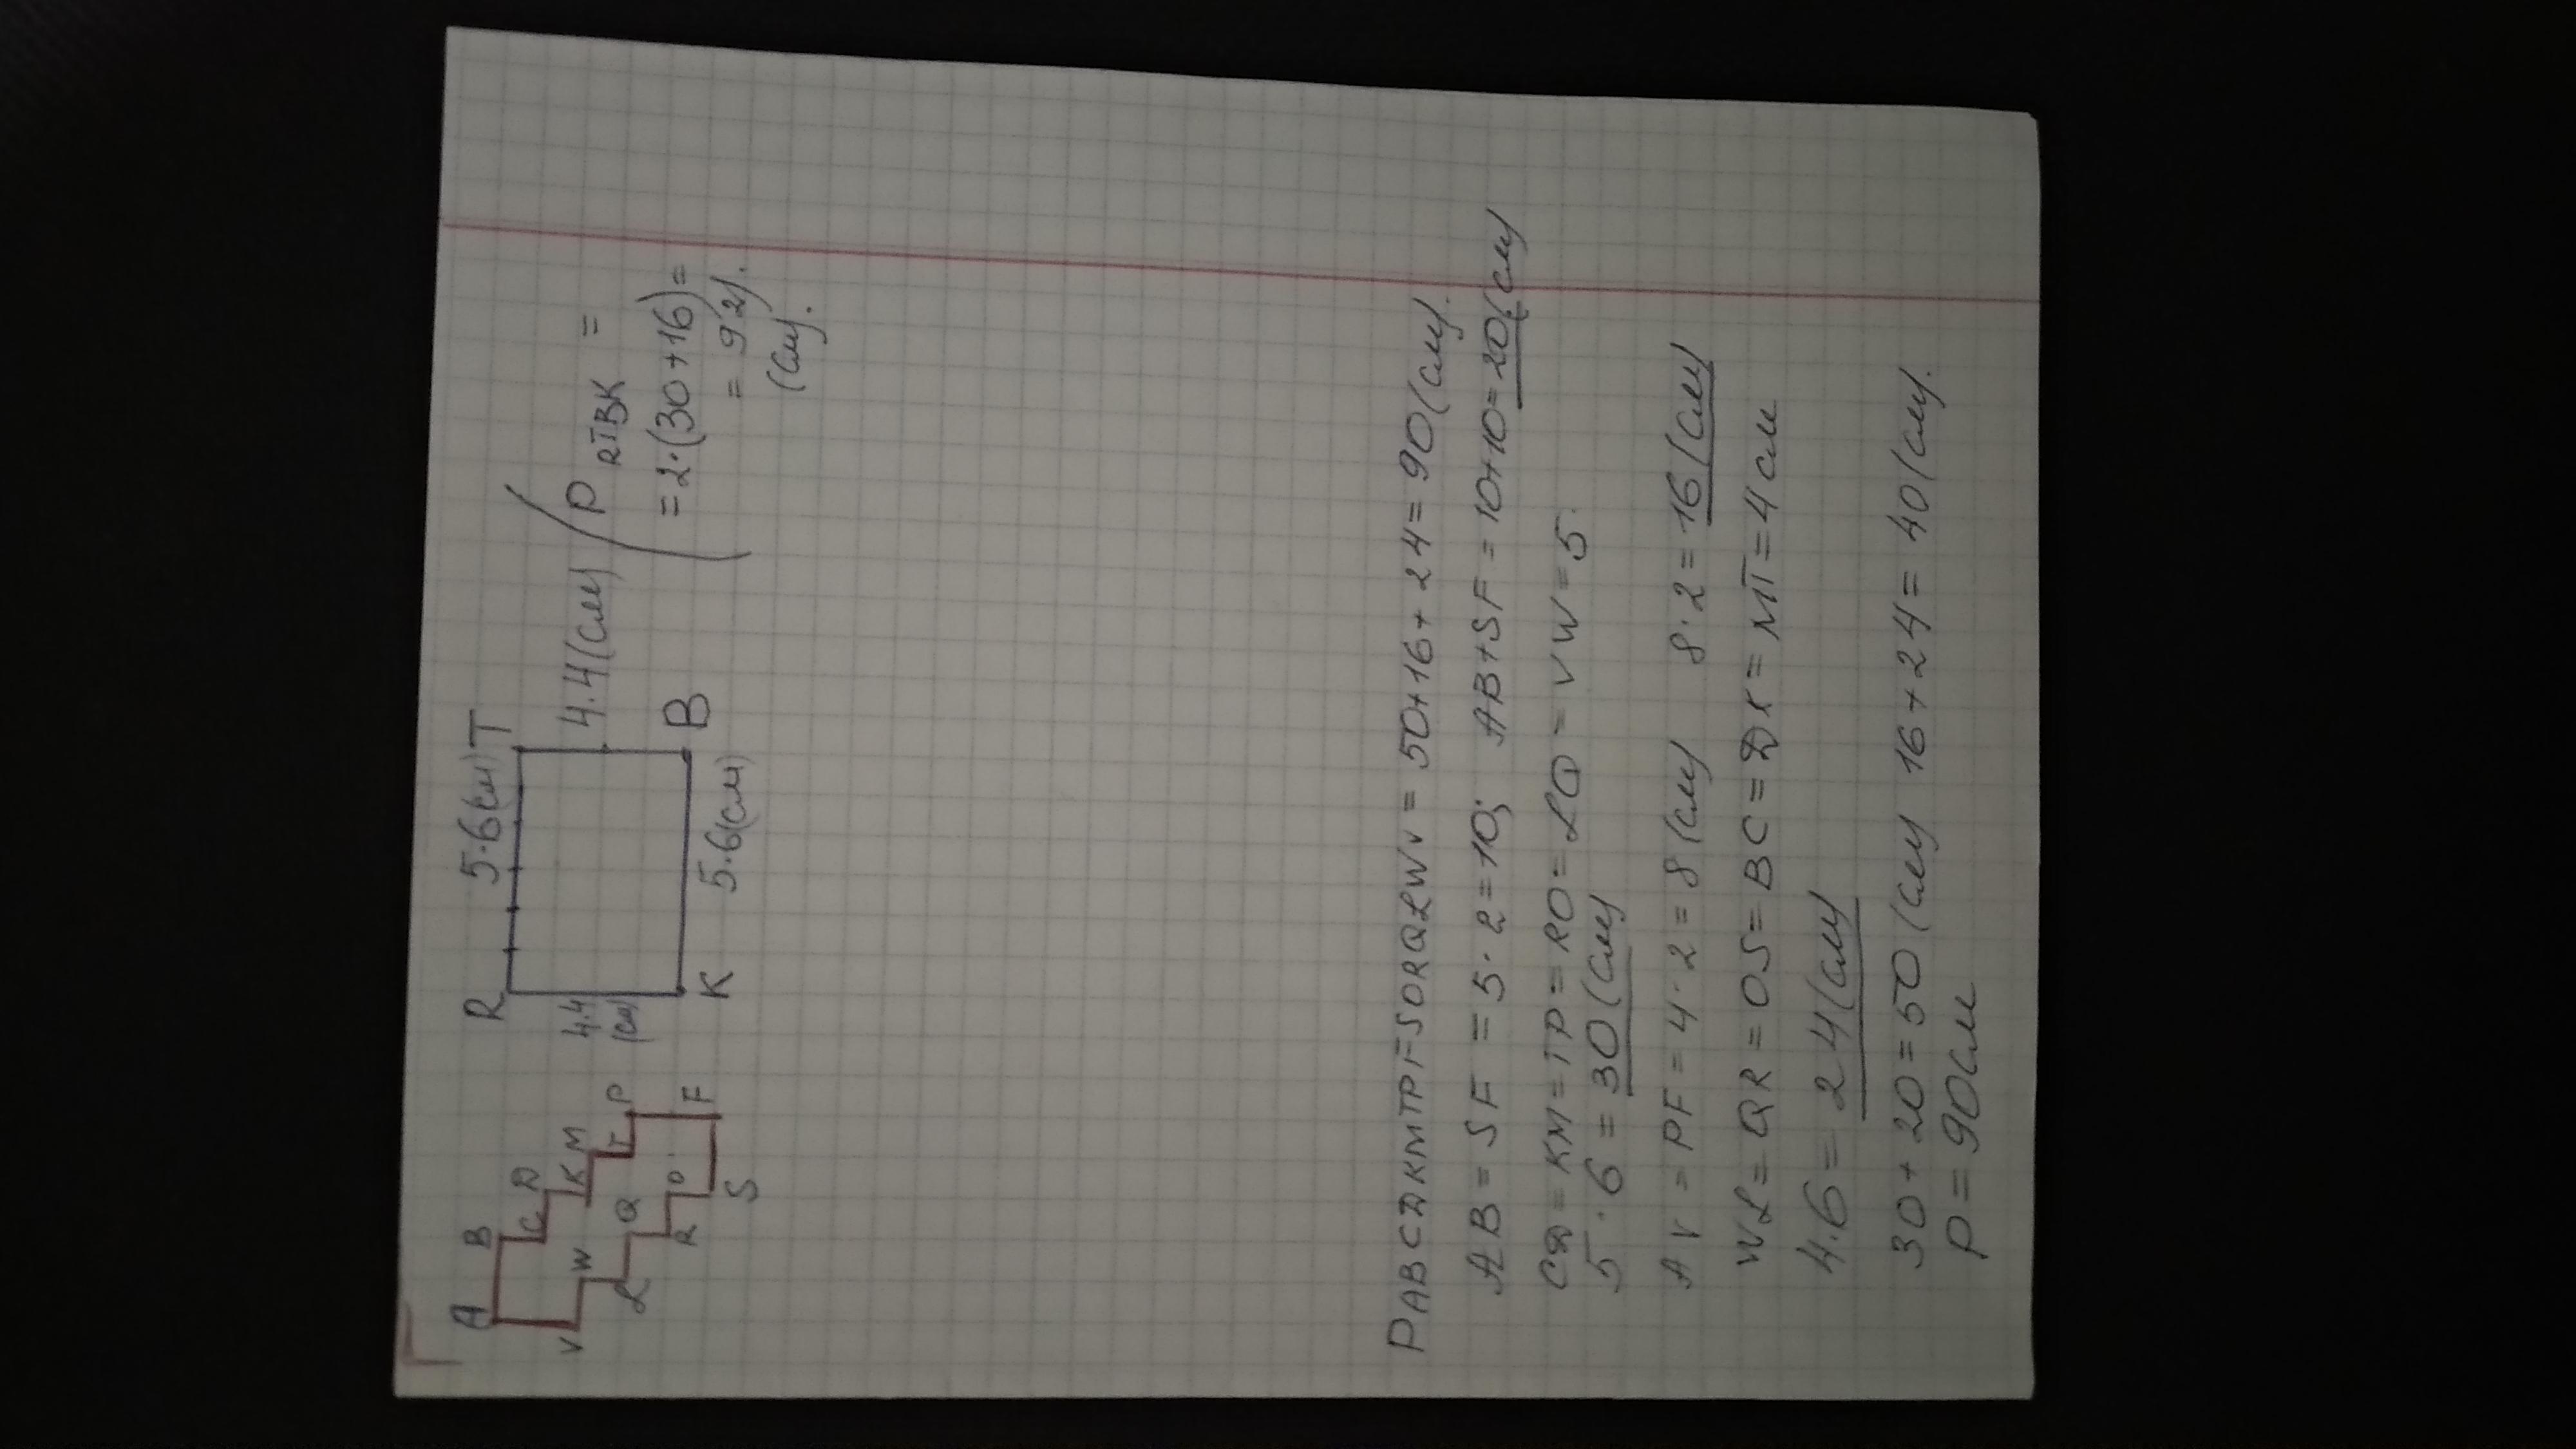 A B
C D
K M
T P
V W
L Q
R O
S F
R 5·6(см) T
4.4
(см)
4.4(см)
K 5.6(см) B
P RTBK =
=2·(30+16)=
= 92).
(см).
PABCDKMTPFSORQLWV = 50+16+24=90(см).
AB = SF = 5·2=10; AB+SF=10+10=20(см)
CD=KM=TP=RO=LQ=VW=5.
5·6=30(см)
AV=PF=4·2=8(см) 8·2=16(см)
WL=QR=OS=BC=DK=MT=4см
4.6=24(см)
30+20=50(см) 16+24=40(см).
P=90см